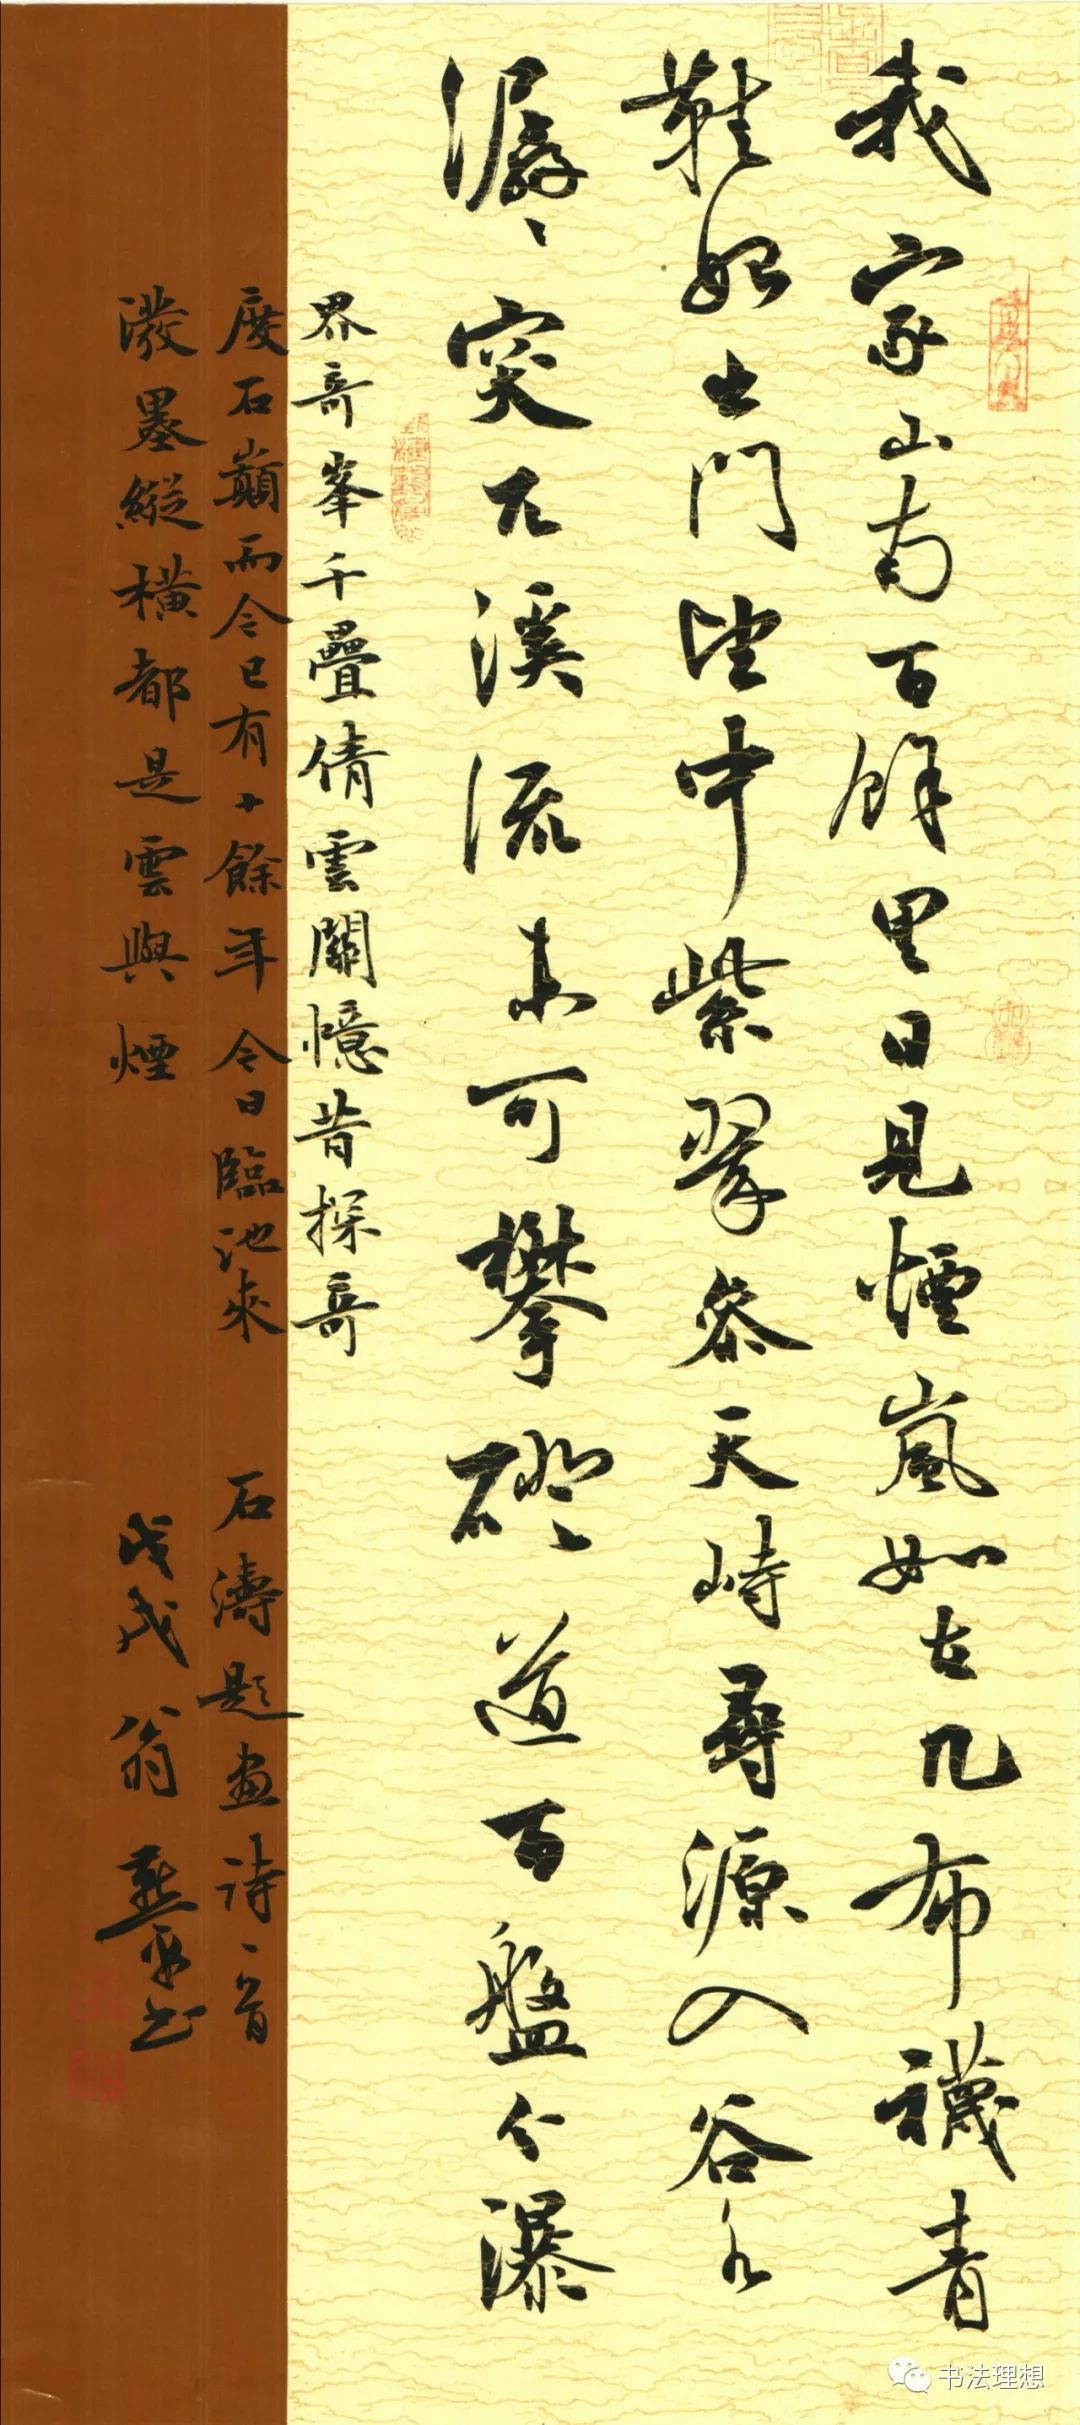 我家山南百餘里日見煙嵐如在几布襪青
鞋始出門望中紫翠參天峙尋源入谷水
潺々突兀溪流未可攀磴々道百盤分瀑
界奇峯千疊倩雲關憶昔探奇
廢石巔而今已有十餘年今日臨池來 石濤題畫詩一首
潑墨縱橫都是雲與煙 戊戌 翁
书法理想